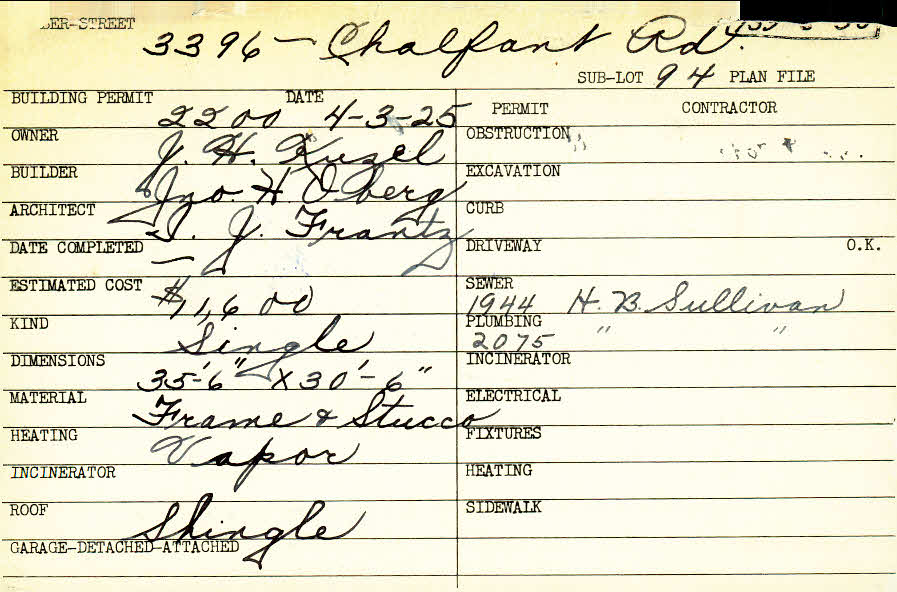 BER-STREET
3396 - Chalfant Rd.
SUB-LOT 94 PLAN FILE
BUILDING PERMIT DATE
2200 4-3-25
OWNER
J. H. Kuzel
BUILDER
Jno. H Oberg
ARCHITECT
I. J. Frantz
DATE COMPLETED
—
ESTIMATED COST
$11,600
KIND
Single
DIMENSIONS
35'-6" X 30'-6"
MATERIAL
Frame & Stucco
HEATING
Vapor
INCINERATOR
ROOF
Shingle
GARAGE-DETACHED-ATTACHED
PERMIT CONTRACTOR
OBSTRUCTION
EXCAVATION
CURB
DRIVEWAY O.K.
SEWER
1944 H. B. Sullivan
PLUMBING
2075 " "
INCINERATOR
ELECTRICAL
FIXTURES
HEATING
SIDEWALK